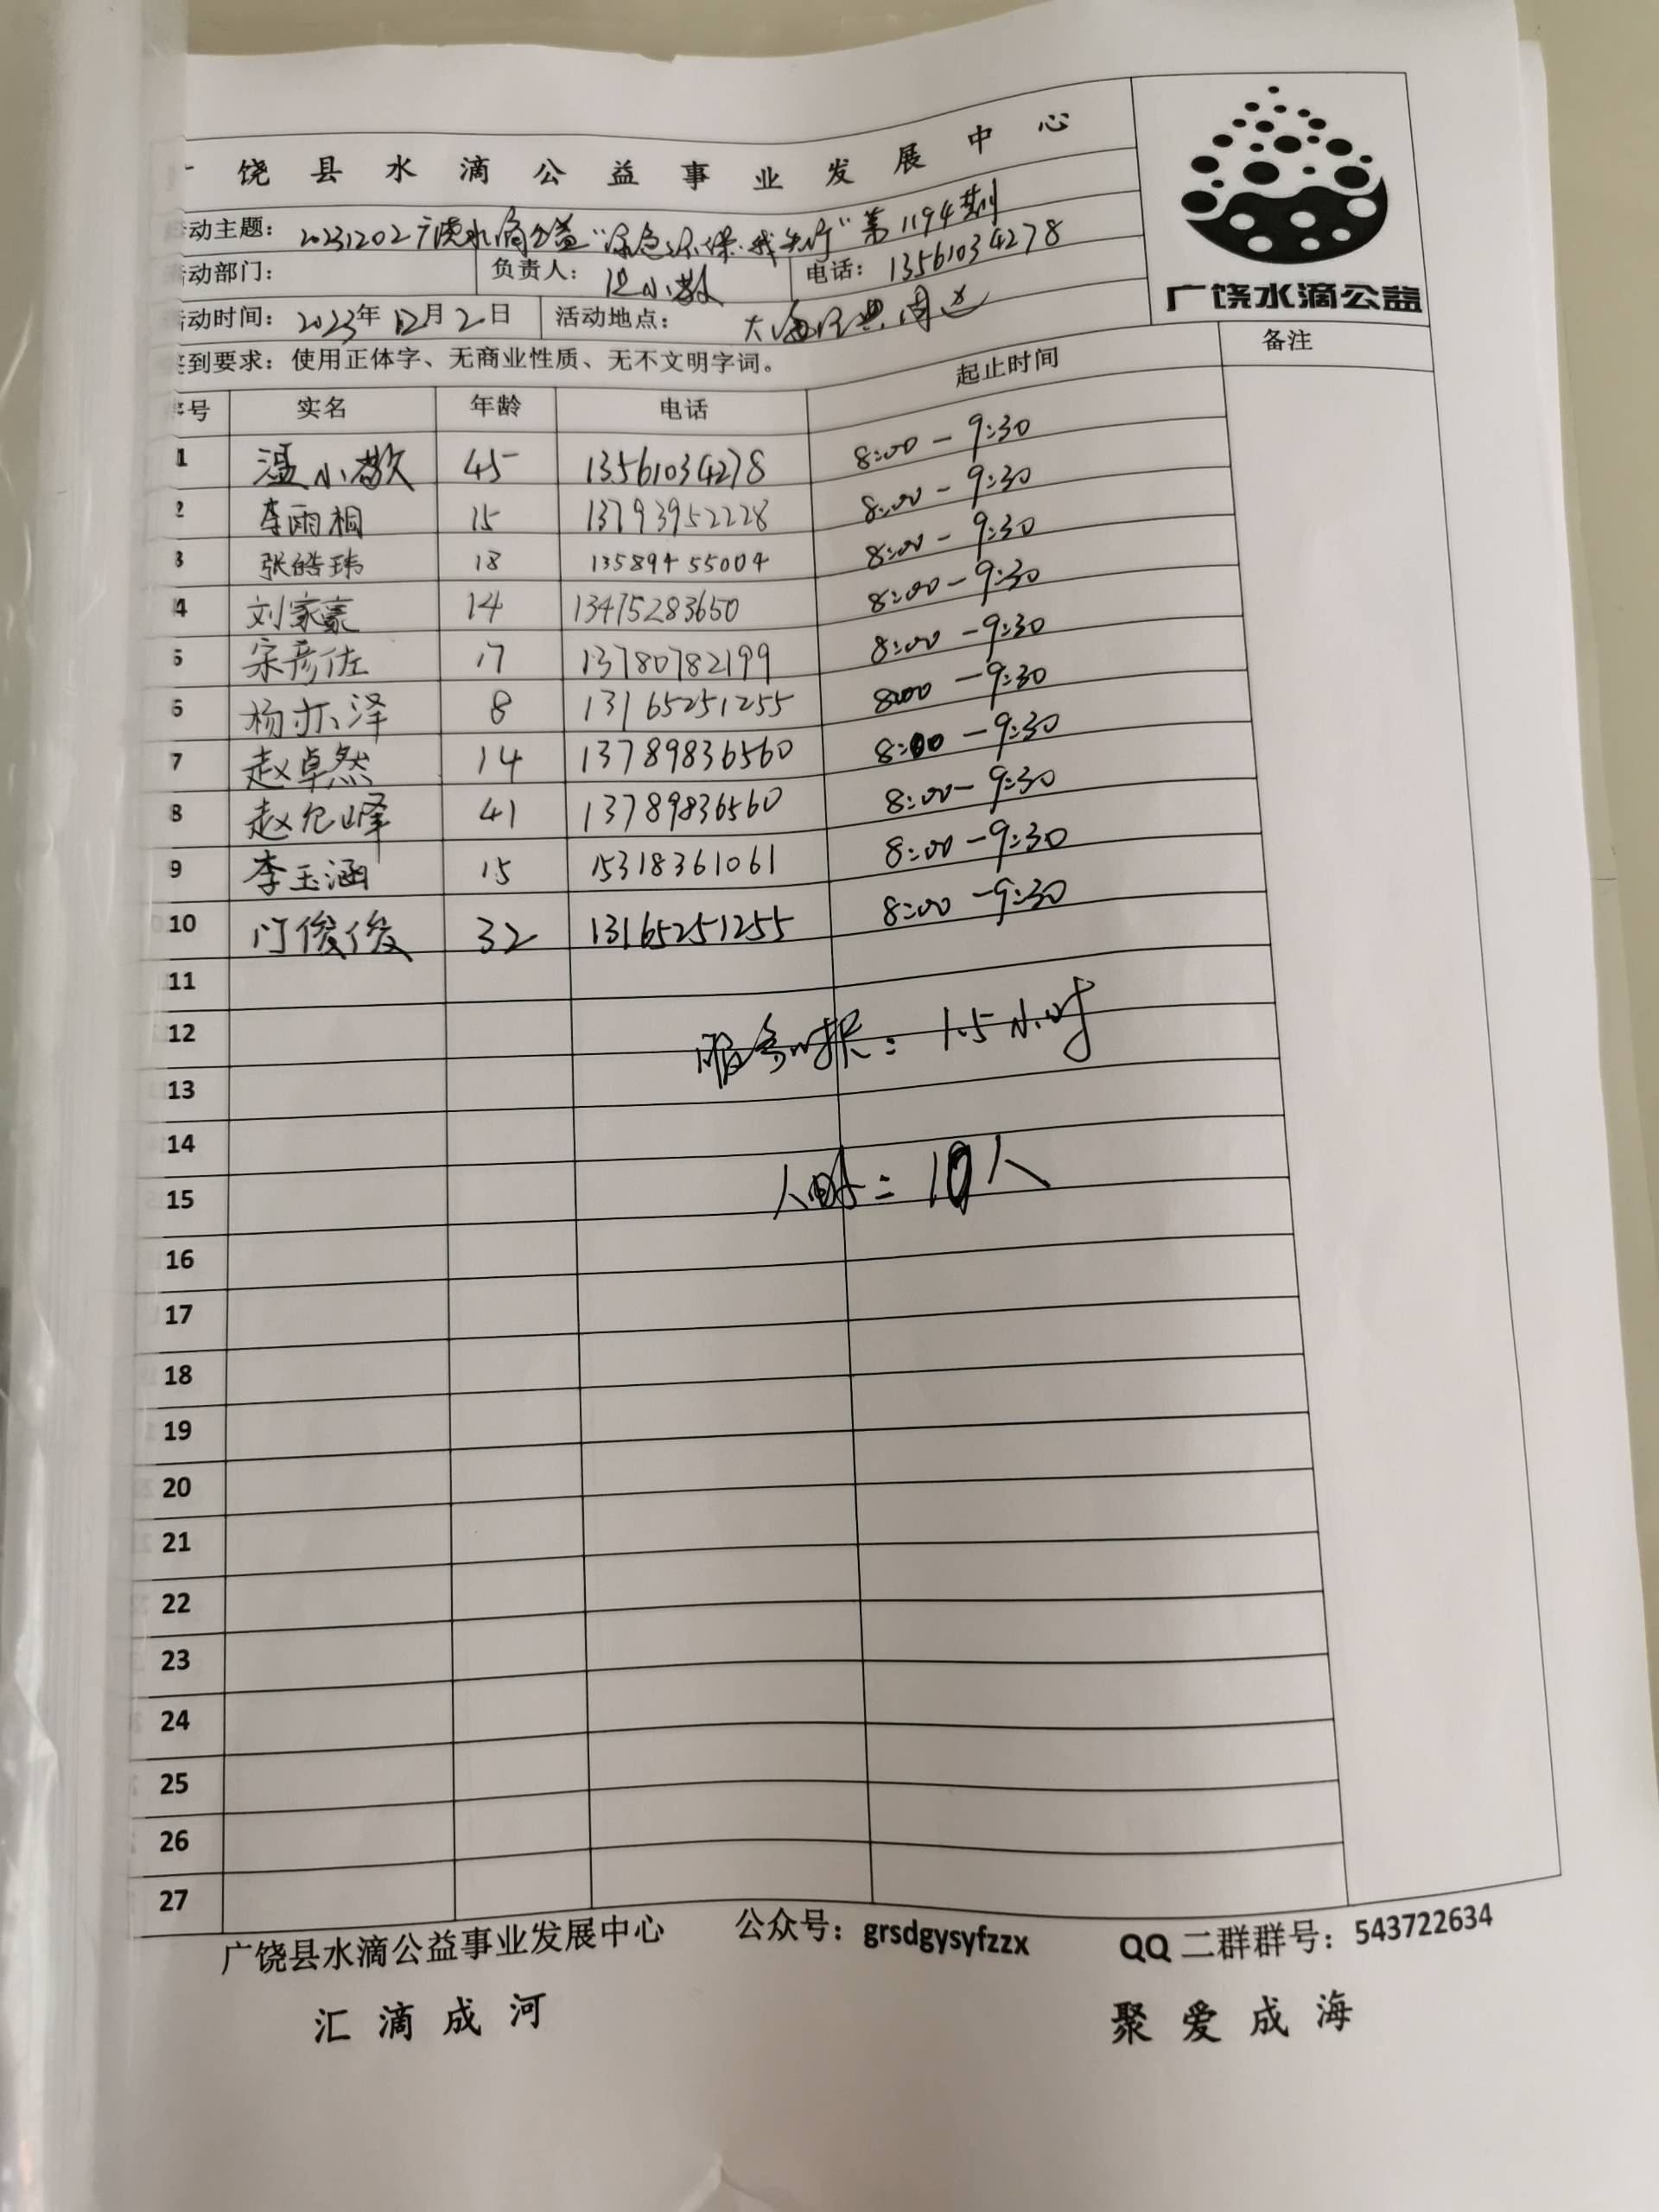 饶县水滴公益事业发展中心
动主题：20231202广饶水滴公益“绿色环保·我先行”第1194期
动部门： 负责人：温小敏 电话：13561034278
动时间：2023年12月2日 活动地点：大海经典周边
广饶水滴公益
到要求：使用正体字、无商业性质、无不文明字词。
号 实名 年龄 电话 起止时间 备注
1 温小敏 45 13561034278 8:00-9:30
2 李雨桐 15 13793952228 8:00-9:30
3 张皓玮 18 13589455004 8:00-9:30
4 刘家豪 14 13475283650 8:00-9:30
5 宋彦佐 17 13780782199 8:00-9:30
6 杨亦泽 8 13165251255 8:00-9:30
7 赵卓然 14 13789836560 8:00-9:30
8 赵允峰 41 13789836560 8:00-9:30
9 李玉涵 15 15318361061 8:00-9:30
10 门俊俊 32 13165251255 8:00-9:30
11
12 服务时长：1.5小时
13
14
15 10人
16
17
18
19
20
21
22
23
24
25
26
27
广饶县水滴公益事业发展中心 公众号：grsdgysyfzzx QQ二群群号：543722634
汇滴成河 聚爱成海